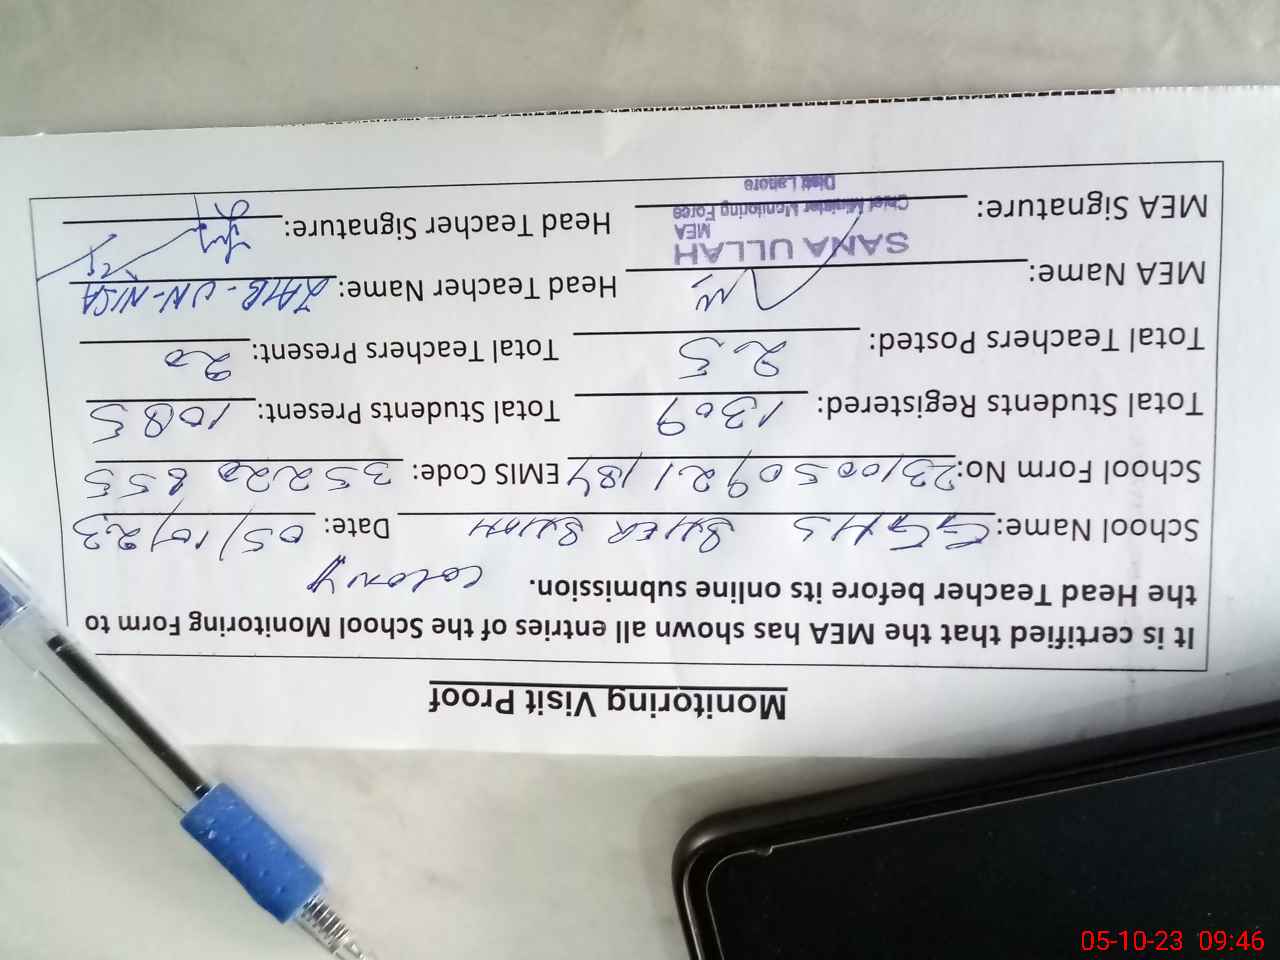 Monitoring Visit Proof
It is certified that the MEA has shown all entries of the School Monitoring Form to
the Head Teacher before its online submission.
School Name: GGHS SHER SHAH COLONY Date: 05/10/23
School Form No: 2310050921184 EMIS Code: 35220855
Total Students Registered: 1309 Total Students Present: 1085
Total Teachers Posted: 25 Total Teachers Present: 20
MEA Name: Head Teacher Name: ZAIB-UN-NISA
SANA ULLAH
MEA
Chief Minister Monitoring Force
Distt Lahore
MEA Signature: Head Teacher Signature:
05-10-23 09:46